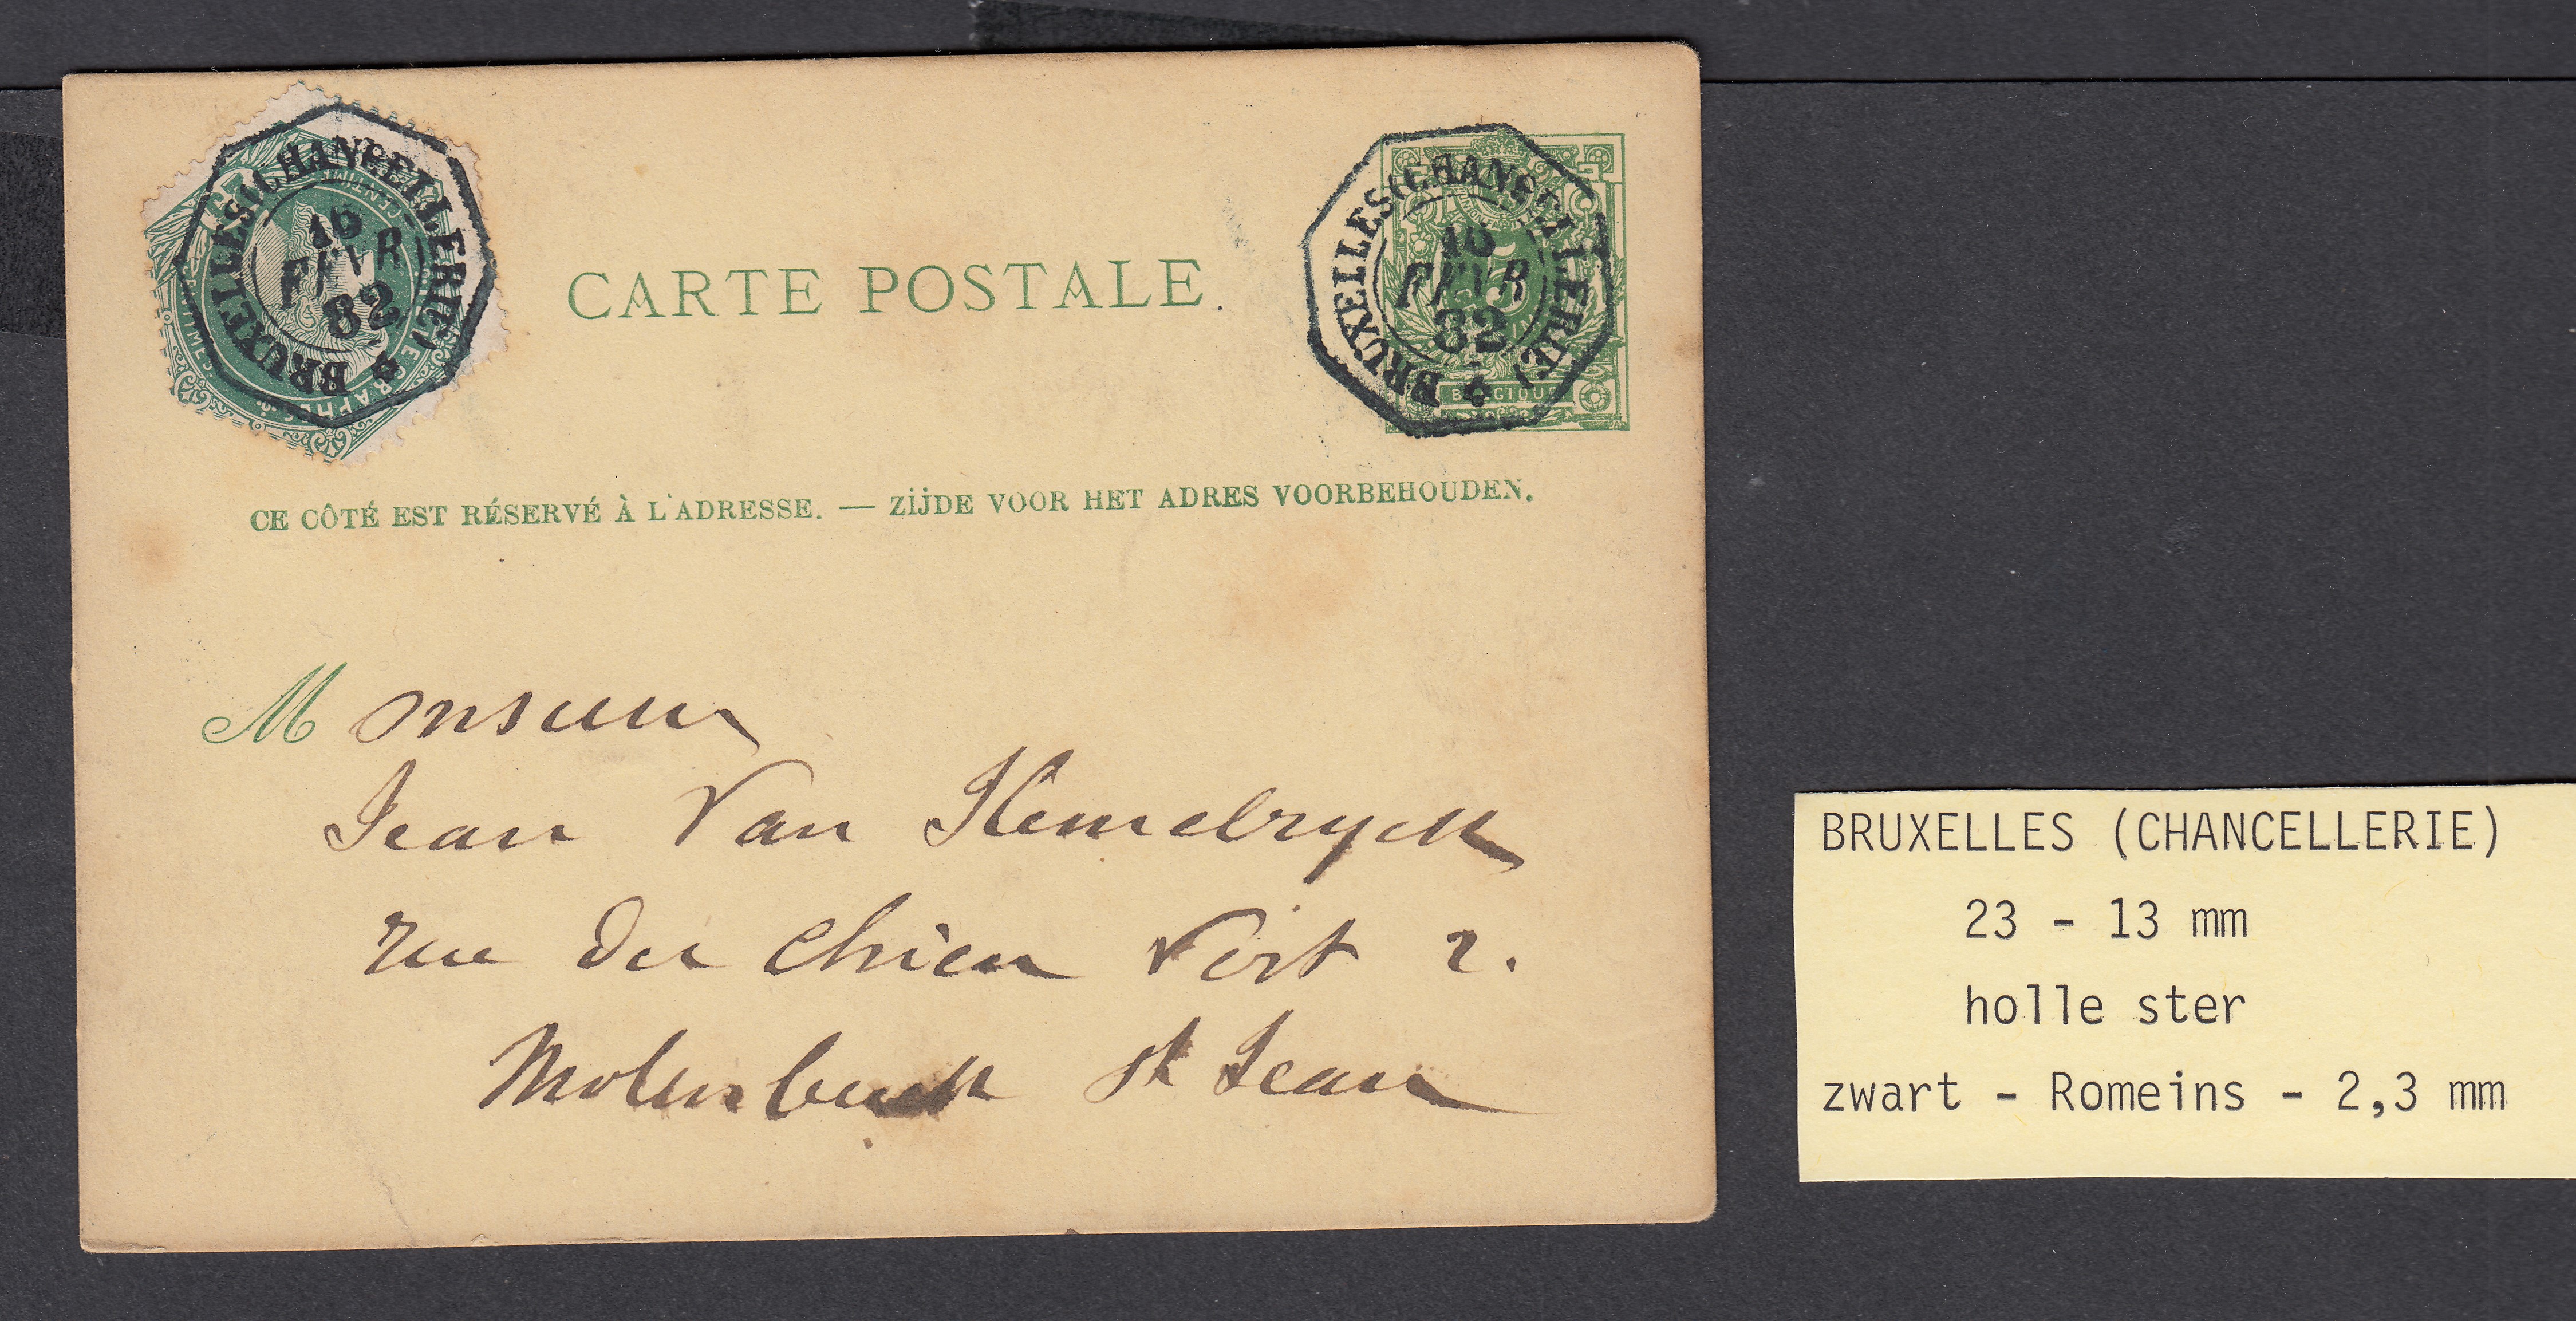 BRUXELLES (CHANCELLERIE)
16
FEVR
82
BRUXELLES (CHANCELLERIE)
16
FEVR
82
BELGIQUE
CARTE POSTALE.
CE CÔTÉ EST RÉSERVÉ À L'ADRESSE. — ZIJDE VOOR HET ADRES VOORBEHOUDEN.
Monsieur
Jean Van Hemelryck
rue du Chien Vert 2.
Molenbeek St Jean
BRUXELLES (CHANCELLERIE)
23 - 13 mm
holle ster
zwart - Romeins - 2,3 mm